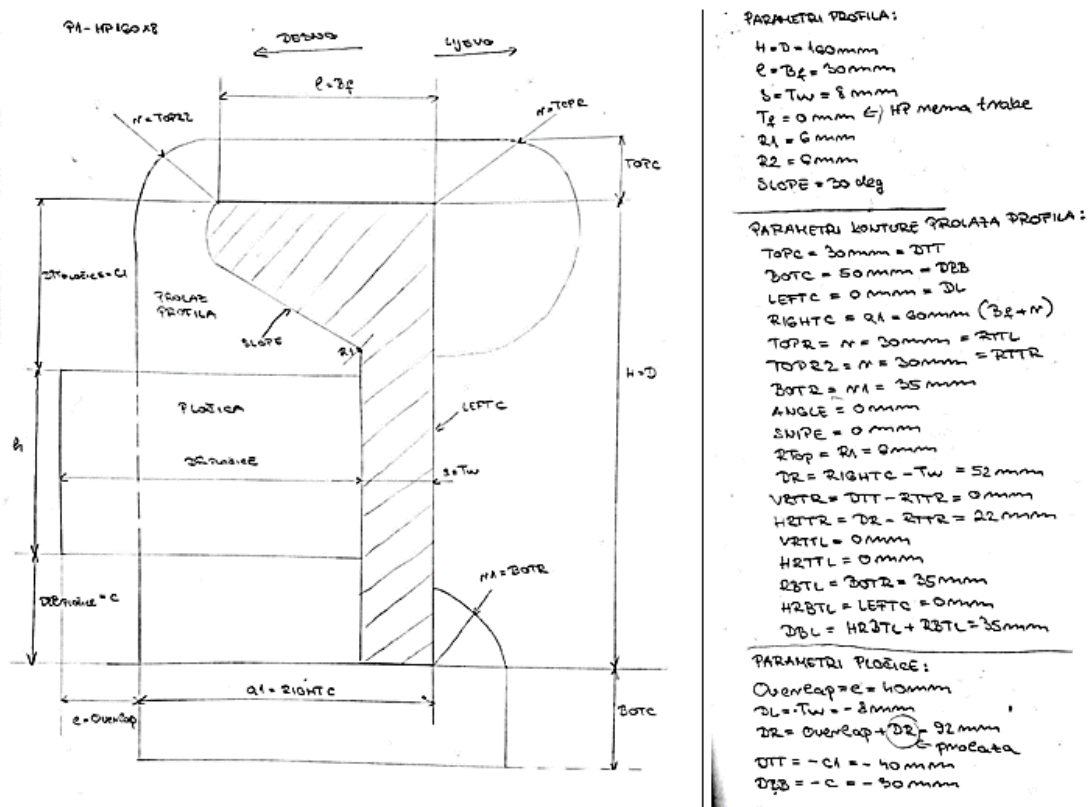 P1-HP160x8
DESNO
LIJEVO
e=Bf
r=TOPR2
r=TOPR
TOPC
DTT PLOČICE=C1
PROLAZ
PROFILA
SLOPE
R1
H=D
PLOČICA
LEFTC
h
DR PLOČICE
s=Tw
r1=BOTR
DBB PLOČICE=C
a1=RIGHTC
e=Overlap
BOTC
PARAMETRI PROFILA:
H=D=160mm
e=Bf=30mm
S=Tw=8mm
Tf=0mm HP nema trake
R1=6mm
R2=6mm
SLOPE=30 deg
PARAMETRI KONTURE PROLAZA PROFILA:
TOPC=30mm=DTT
BOTC=50mm=DBB
LEFTC=0mm=DL
RIGHTC=a1=60mm (Bf+r)
TOPR=r=30mm=RTTL
TOPR2=r=30mm=RTTR
BOTR=r1=35mm
ANGLE=0mm
SNIPE=0mm
RTop=R1=
DR=RIGHTC-Tw=52mm
VRTTR=DTT-RTTR=0mm
HRTTR=DR-RTTR=22mm
VRTTL=0mm
HRTTL=0mm
RBTL=BOTR=35mm
HRBTL=LEFTC=0mm
DBL=HRBTL+RBTL=35mm
PARAMETRI PLOČICE:
Overlap=e=40mm
DL=-Tw=-8mm
DR=Overlap+DR=92mm
prolaza
DTT=-C1=-40mm
DBB=-C=